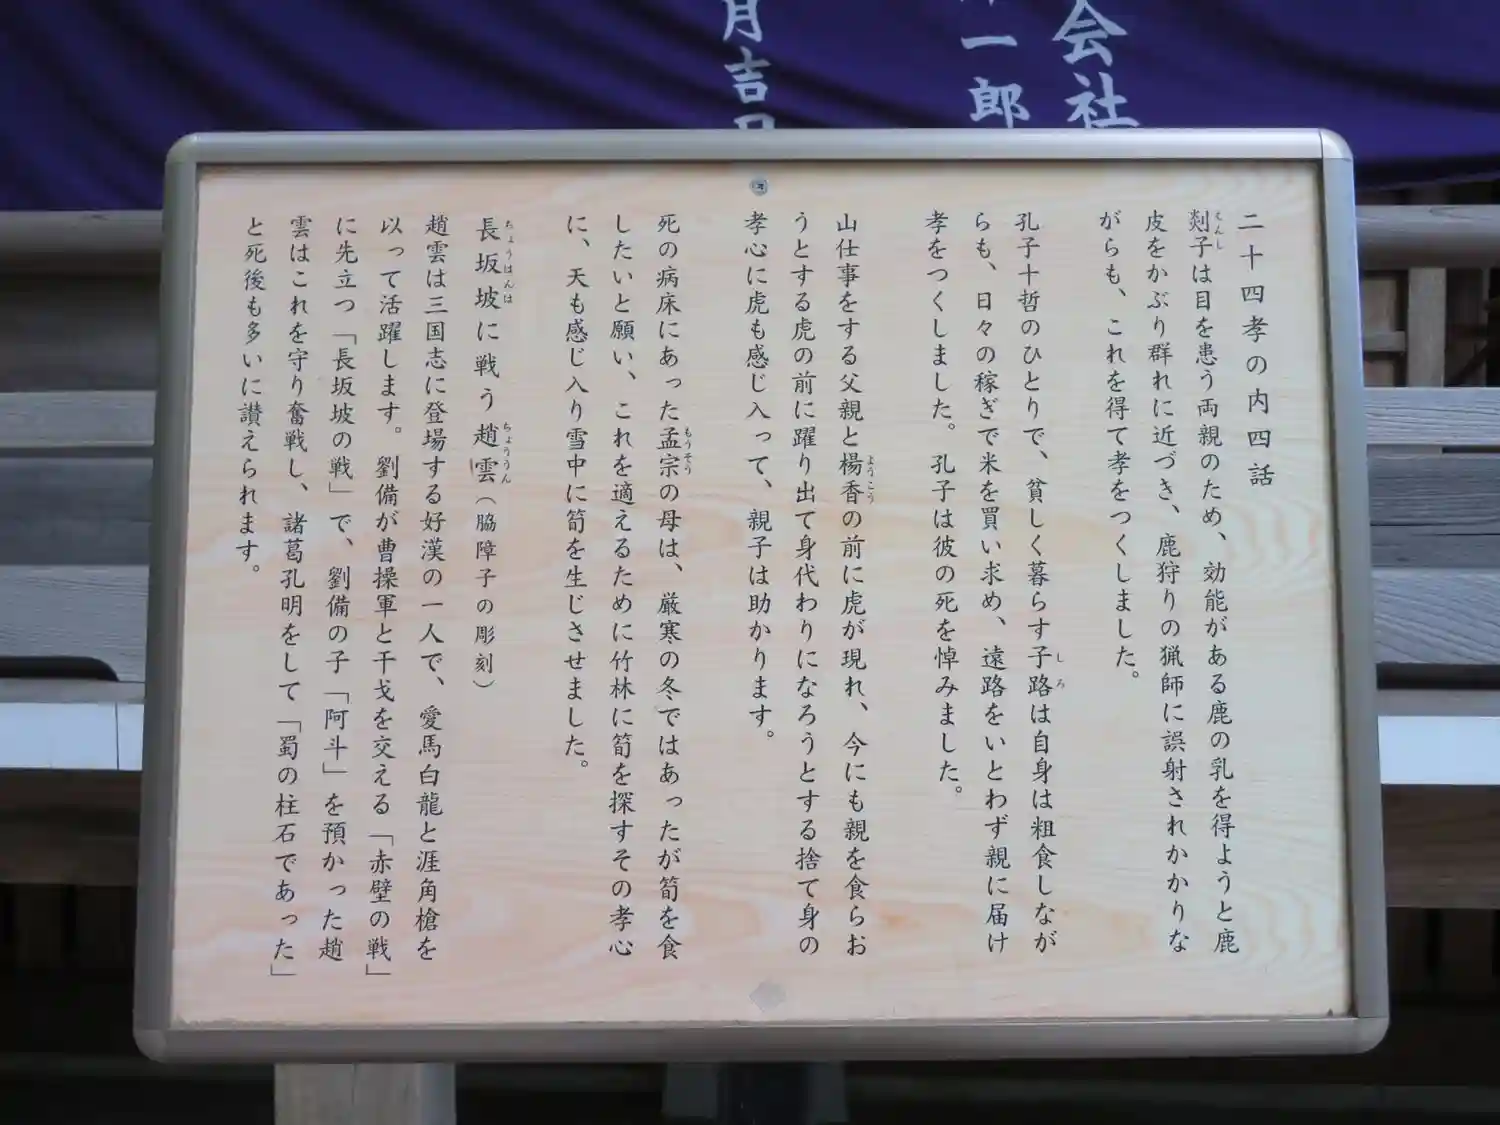 会社
一郎
月吉日
二十四孝の内四話
剡子は目を患う両親のため、効能がある鹿の乳を得ようと鹿
えんし
皮をかぶり群れに近づき、鹿狩りの猟師に誤射されかかりな
がらも、これを得て孝をつくしました。
孔子十哲のひとりで、貧しく暮らす子路は自身は粗食しなが
しろ
らも、日々の稼ぎで米を買い求め、遠路をいとわず親に届け
孝をつくしました。孔子は彼の死を悼みました。
山仕事をする父親と楊香の前に虎が現れ、今にも親を食らお
ようこう
うとする虎の前に躍り出て身代わりになろうとする捨て身の
孝心に虎も感じ入って、親子は助かります。
死の病床にあった孟宗の母は、厳寒の冬ではあったが筍を食
もうそう
したいと願い、これを適えるために竹林に筍を探すその孝心
に、天も感じ入り雪中に筍を生じさせました。
長坂坡に戦う趙雲（脇障子の彫刻）
ちょうはんは ちょううん
趙雲は三国志に登場する好漢の一人で、愛馬白龍と涯角槍を
以って活躍します。劉備が曹操軍と干戈を交える「赤壁の戦」
に先立つ「長坂坡の戦」で、劉備の子「阿斗」を預かった趙
雲はこれを守り奮戦し、諸葛孔明をして「蜀の柱石であった」
と死後も多いに讃えられます。